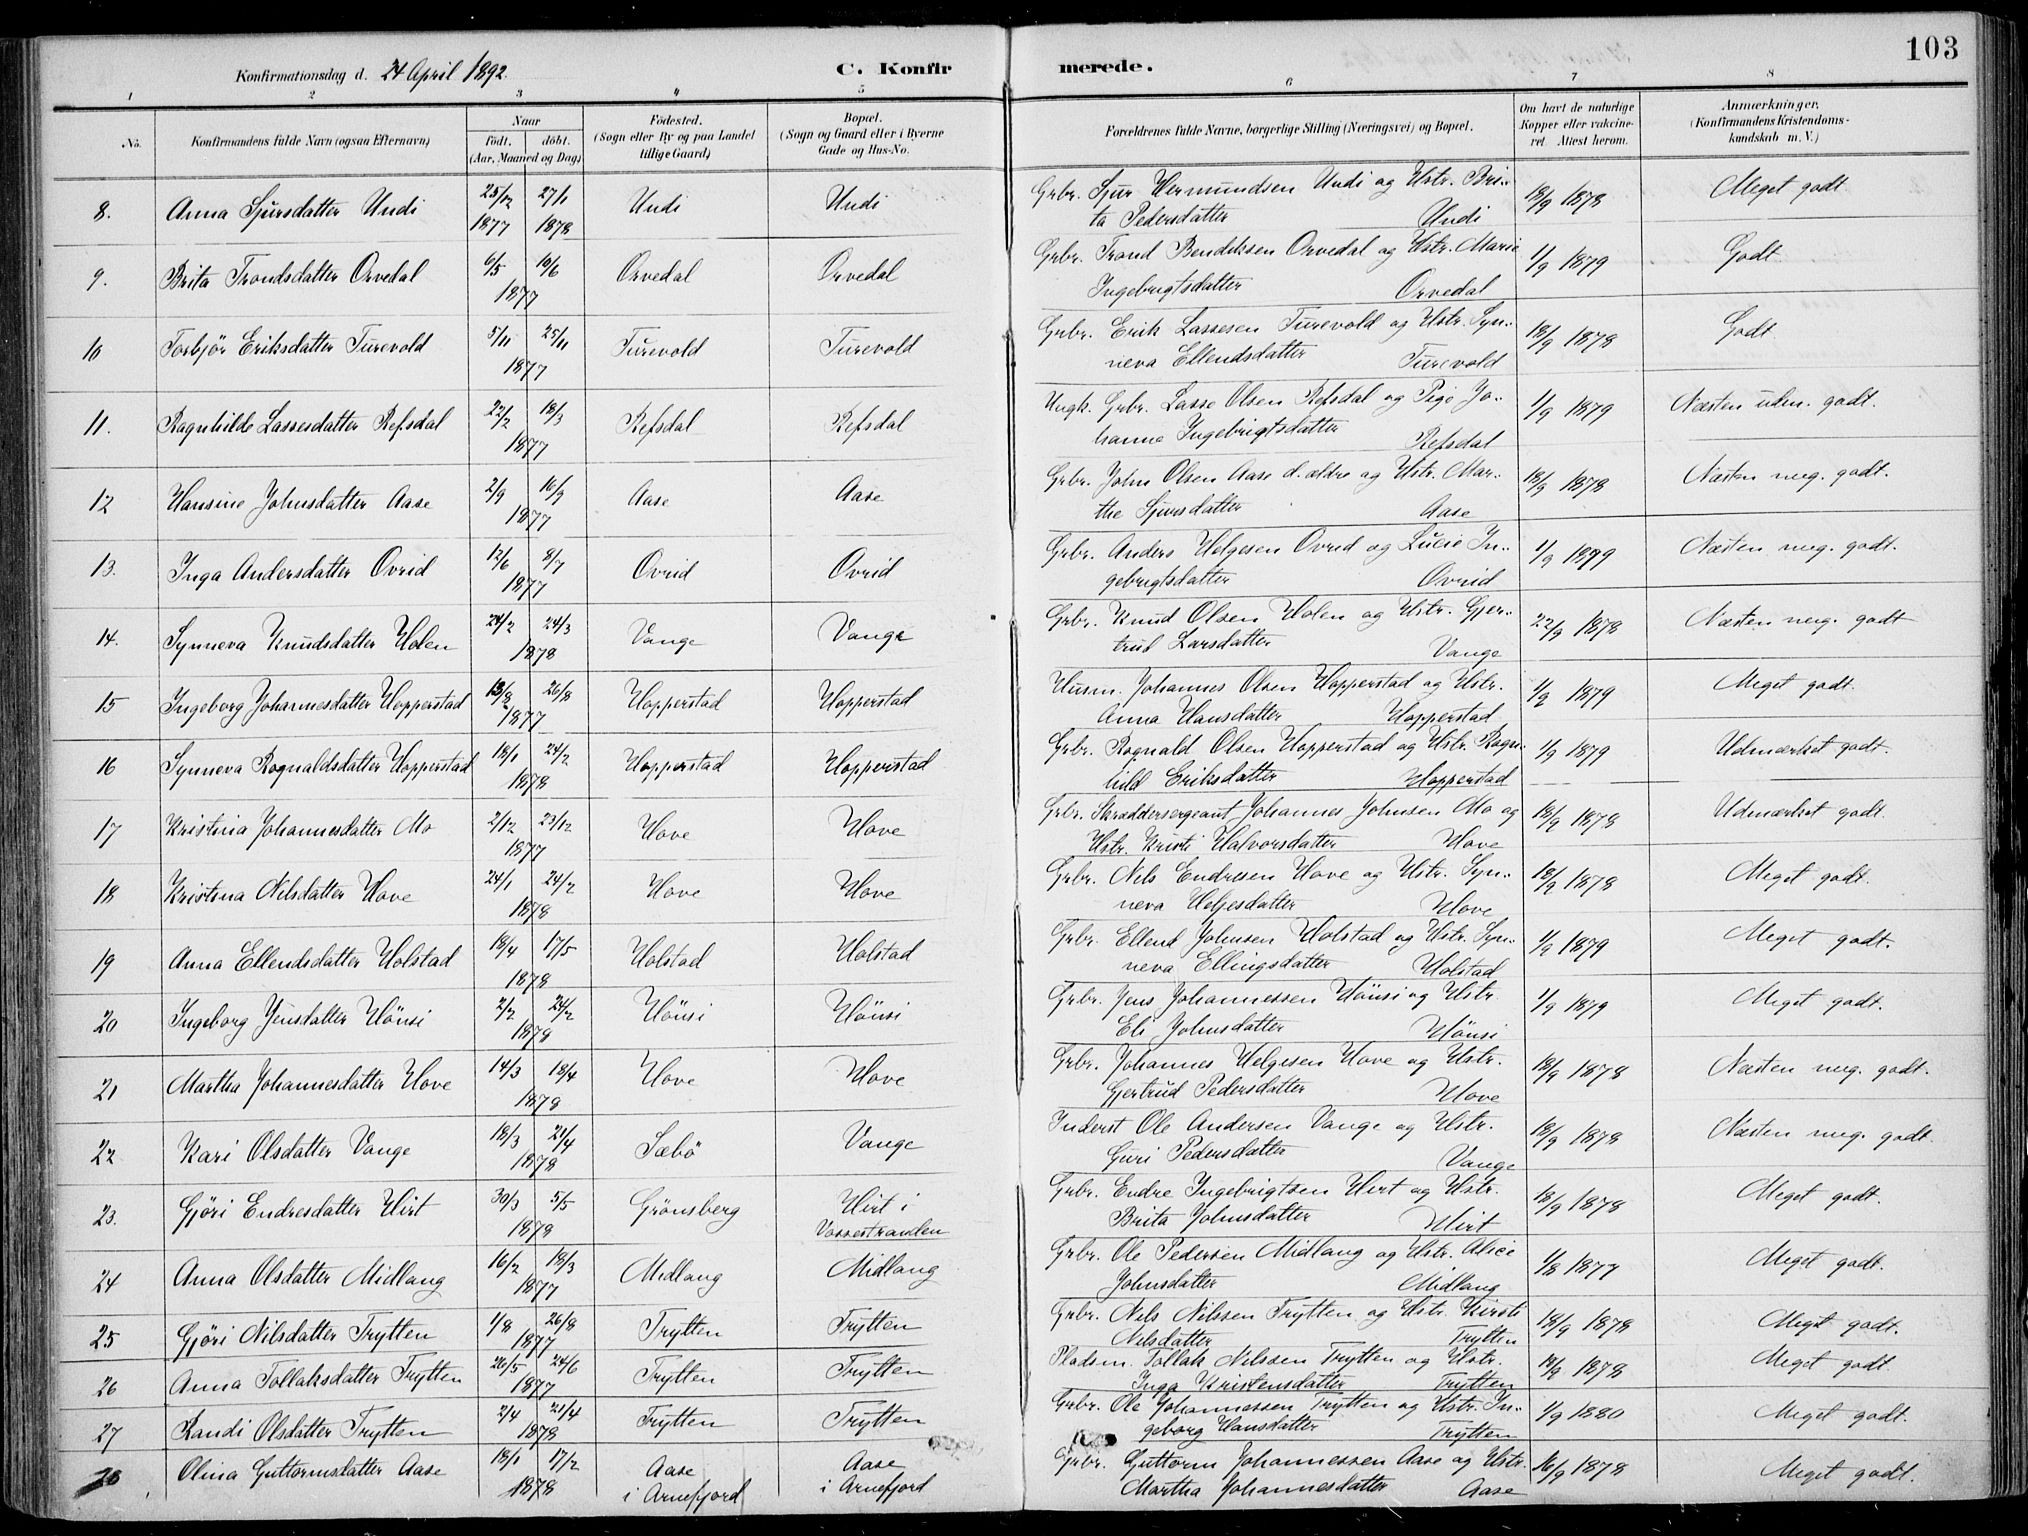 103
Konfirmationsdag d. 24 April 1892. C. Konfirmerede.
1 2 3 4 5 6 7 8
No. Konfirmandens fulde Navn (ogsaa Efternavn) Naar født. døbt. (Aar, Maaned og Dag) Fødested. (Sogn eller By og paa Landet tillige Gaard) Bopæl. (Sogn og Gaard eller i Byerne Gade og Hus-No. Forældrenes fulde Navne, borgerlige Stilling (Næringsvei) og Bopæl. Om havt de naturlige Kopper eller vakcineret. Attest herom. Anmærkninger, (Konfirmandens Kristendomskundskab m. V.)
8. Anna Sjursdatter Undi 25/12 1877 27/1 1878 Undi Undi Grbr. Sjur Hermundsen Undi og Hstr. Bri- 18/9 1878 Meget godt
ta Pedersdatter Undi
9. Brita Trondsdatter Orvedal 6/5 10/6 1877 Orvedal Orvedal Grbr. Trond Bendiksen Orvedal og Hstr. Marie 1/9 1879 Godt
Ingebrigtsdatter Orvedal
10 Torbjör Eriksdatter Turevold 5/11 25/11 1877 Turevold Turevold Grbr. Erik Lassesen Turevold og Hstr. Syn- 18/9 1878 Godt
neva Ellendsdatter Turevold
11. Ragnhilde Lassesdatter Refsdal 22/2 18/3 1877 Refsdal Refsdal Ungk. Grbr. Lasse Olsen Refsdal og Pige Jo- 1/9 1879 Næsten udm. godt.
hanne Ingebrigtsdatter Refsdal
12 Hansine Johnsdatter Aase 2/9 16/9 1877 Aase Aase Grbr. John Olsen Aase d. ældre og Hstr. Mar- 18/9 1878 Næsten meg. godt.
the Sjursdatter Aase
13. Inga Andersdatter Ovrid 12/6 8/7 1877 Ovrid Ovrid Grbr. Anders Helgesen Ovrid og Lucie In- 1/9 1879 Næsten meg. godt.
gebrigtsdatter Ovrid
14. Synneva Knudsdatter Holen 24/2 24/3 1878 Vange Vange Grbr. Knud Olsen Holen og Hstr. Gjer- 22/9 1878 Næsten meg. godt
trud Larsdatter Vange
15 Ingeborg Johannesdatter Hopperstad 13/8 26/8 1877 Hopperstad Hopperstad Husm. Johannes Olsen Hopperstad og Hstr. 1/9 1879 Meget godt.
Anna Hansdatter Hopperstad
16 Synneva Rognaldsdatter Hopperstad 18/1 24/2 1878 Hopperstad Hopperstad Grbr. Rognald Olsen Hopperstad og Hstr. Ragn- 1/9 1879 Udmærket godt.
hild Eriksdatter Hopperstad
17 Kristina Johannesdatter Mo 2/12 23/12 1877 Hove Hove Grbr. Skræddersergeant Johannes Johnsen Mo og 18/9 1878 Udmærket godt.
Hstr. Kristi Halvorsdatter Hove
18 Kristina Nilsdatter Hove 24/1 24/2 1878 Hove Hove Grbr. Nils Endresen Hove og Hstr. Syn- 18/9 1878 Meget godt.
neva Helgesdatter Hove
19 Anna Ellendsdatter Holstad 18/4 17/5 1878 Holstad Holstad Grbr. Ellend Johnsen Holstad og Hstr. Syn- 1/9 1879 Meget godt.
neva Ellingsdatter Holstad
20 Ingeborg Jensdatter Hönsi 2/2 24/2 1878 Hönsi Hönsi Grbr. Jens Johannessen Hönsi og Hstr. 1/9 1879 Meget godt.
Eli Johnsdatter Hönsi
21 Martha Johannesdatter Hove 14/3 18/4 1878 Hove Hove Grbr. Johannes Helgesen Hove og Hstr. 18/9 1878 Næsten meg. godt.
Gjertrud Pedersdatter Hove
22 Kari Olsdatter Vange 18/3 21/4 1878 Sæbö Vange Inderst Ole Andersen Vange og Hstr. 18/9 1878 Næsten meg. godt.
Guri Pedersdatter Vange
23. Gjöri Endresdatter Hirt 30/3 5/5 1878 Grönsberg Hirt i Vossestranden Grbr. Endre Ingebrigtsen Hirt og Hstr. 18/9 1878 Meget godt.
Brita Johnsdatter Hirt
24 Anna Olsdatter Midlang 16/2 18/3 1877 Midlang Midlang Grbr. Ole Pedersen Midlang og Hstr. Alice 1/8 1877 Meget godt.
Johnsdatter Midlang
25 Gjöri Nilsdatter Trytten 1/8 26/8 1877 Trytten Trytten Grbr. Nels Nilssen Trytten og Hstr. Kirsti 18/9 1878 Meget godt.
Nilsdatter Trytten
26 Anna Tollaksdatter Trytten 26/5 24/6 1877 Trytten Trytten Pladsm. Tollak Nilssen Trytten og Hstr. 18/9 1878 Meget godt
Inga Kristensdatter Trytten
27 Randi Olsdatter Trytten 2/4 21/4 1878 Trytten Trytten Grbr. Ole Johannessen Trytten og Hstr. In- 1/9 1880 Meget godt.
geborg Hansdatter Trytten
28 Olina Guttormsdatter Aase 18/1 17/2 1878 Aase i Arnefjord Aase i Arnefjord Grbr. Guttorm Johannessen Aase og Hstr. 16/9 1878 Meget godt.
Martha Johannesdatter Aase